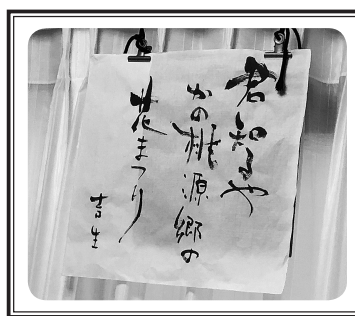 君知るや
かの桃源郷の
花まつり
吉生